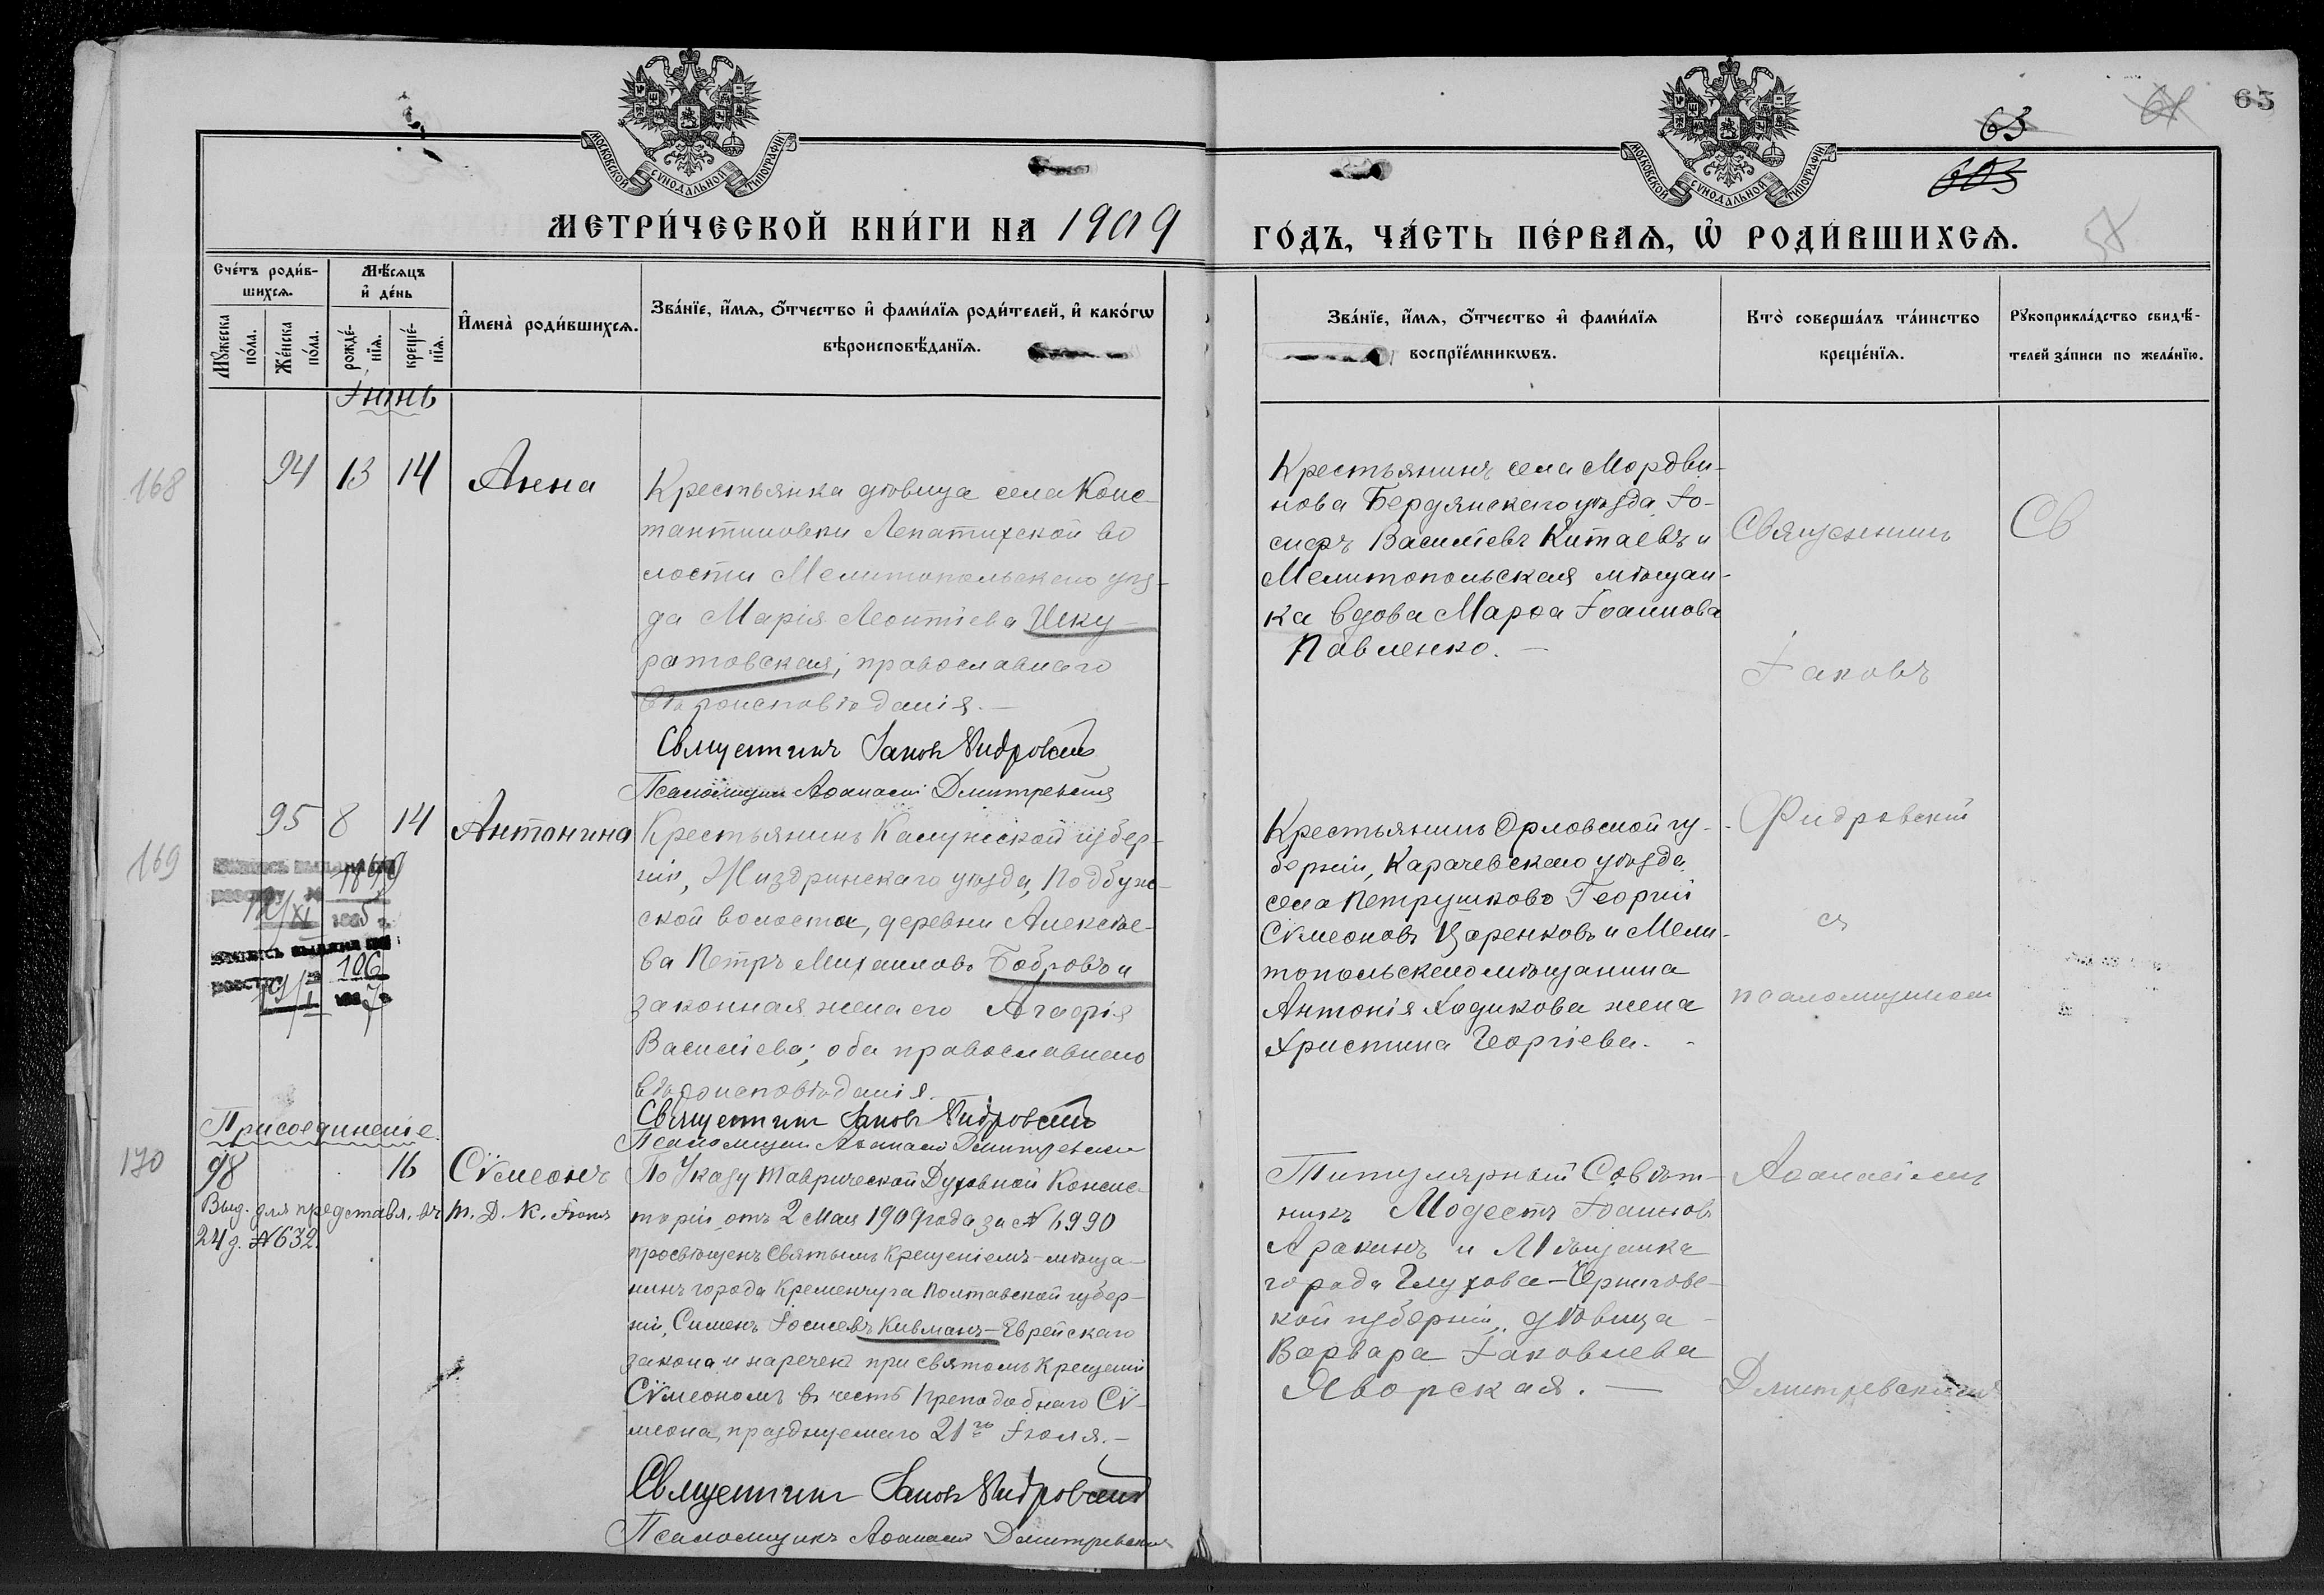 65
61
63
603
58
МОСКОВСКОЙ СѴНОДАЛЬНОЙ ТИПОГРАФІИ
МОСКОВСКОЙ СѴНОДАЛЬНОЙ ТИПОГРАФІИ
МЕТРИ́ЧЕСКОЙ КНИ́ГИ НА 1909
ГО́ДЪ, ЧА́СТЬ ПЕ́РВАѦ, Ѡ҆ РОДИ́ВШИХСѦ.
Сче́тъ роди́в-
шихсѧ.
Мѣ́сѧцъ
и҆ де́нь
Мꙋ́жеска
по́ла.
Же́нска
по́ла.
рожде́-
нїѧ.
креще́-
нїѧ.
И҆мена̀ роди́вшихсѧ.
Зва́нїе, и҆́мѧ, ѻ҆́тчество и҆ фами́лїѧ роди́телей, и҆ како́гѡ
вѣроисповѣ́данїѧ.
Зва́нїе, и҆́мѧ, ѻ҆́тчество и҆ фами́лїѧ
воспрїе́мникѡвъ.
Кто̀ соверша́лъ та́инство
креще́нїѧ.
Рꙋкоприкла́дство свидѣ́-
телей за́писи по жела́нїю.
Іюнь
168
94 13 14 Анна
Крестьянка дѣвица села Конс-
тантиновки Лепатихской во
лости Мелитопольскаго уѣз-
да Марія Леонтіева Шку-
ратовская; православнаго
вѣроисповѣданія.—
Священникъ Іаковъ Фидровскій
Псаломщикъ Аѳанасій Дмитревскій
Крестьянинъ села Мордви-
нова Бердянскаго уѣзда Іо-
сифъ Василіевъ Китаевъ и
Мелитопольская мѣщан-
ка вдова Марѳа Іоаннова
Павленко.—
Священникъ
Св
Іаковъ
169
95 8 14 Антонина
Крестьянинъ Калужской губер-
ніи, Жиздринскаго уѣзда, Подбужс-
ской волости, деревни Алексѣе-
ва Петръ Михаиловъ Бобровъ и
законная жена его Агафія
Василіева; оба православнаго
вѣроисповѣданія.
Священникъ Іаковъ Фидровскій
Псаломщикъ Аѳанасій Дмитревскій
106
Крестьянинъ Орловской гу-
берніи, Карачевскаго уѣзда
села Петрушково Георгій
Сѵмеоновъ Царенковъ и Мели-
топольскаго мѣщанина
Антонія Ходикова жена
Христина Георгіева.-
Фидровскій
съ
псаломщикомъ
Присоединеніе
170
98 16 Сѵмеонъ
Выд. для представл. въ Т. Д. К. Іюня
24 д. № 632.
По Указу Таврической Духовной Консис-
торіи отъ 2 Мая 1909 года за № 6990
просвѣщенъ Святымъ Крещеніемъ- мѣща-
нинъ города Кременчуга Полтавской губер-
ніи, Сименъ Іосиевъ Кивманъ-Еврейскаго
закона и нареченъ при святомъ Крещеніи
Сѵмеономъ въ честь Преподобнаго Сѵ-
меона, празднуемаго 21го Іюля.—
Священникъ Іаковъ Фидровскій
Псаломщикъ Аѳанасій Дмитревскій
Титулярный Совѣт-
никъ Модестъ Іоанновъ
Аракинъ и Мѣщанка
города Глухова-Чернигове-
кой губерніи, дѣвица
Варвара Іаковлева
Яворская.—
Аѳанасіемъ
Дмитревскимъ